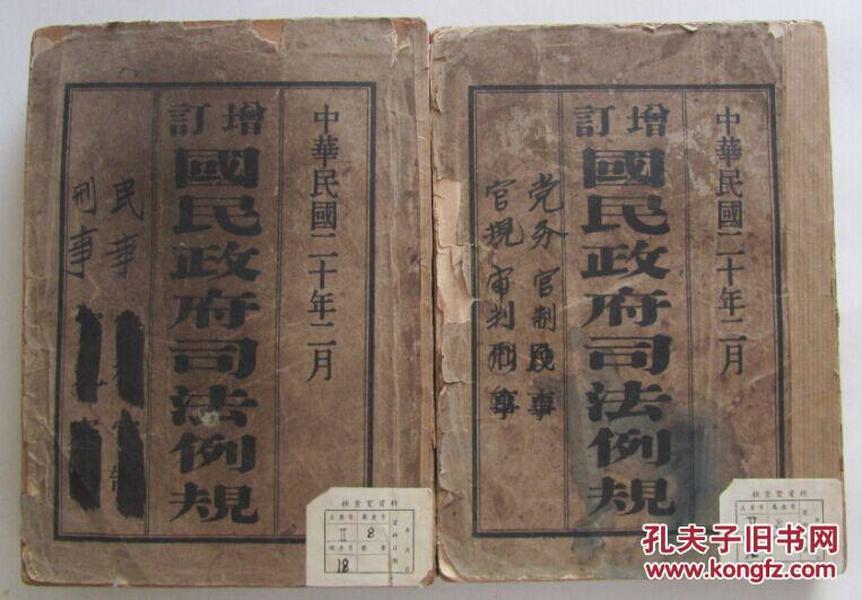 中華民國二十年二月
增訂
國民政府司法例規
民事
刑事
檢查室資料
II 8
18
中華民國二十年二月
增訂
國民政府司法例規
党务 官制 民事
官規 審判 刑事
檢查室資料
孔夫子旧书网
www.kongfz.com